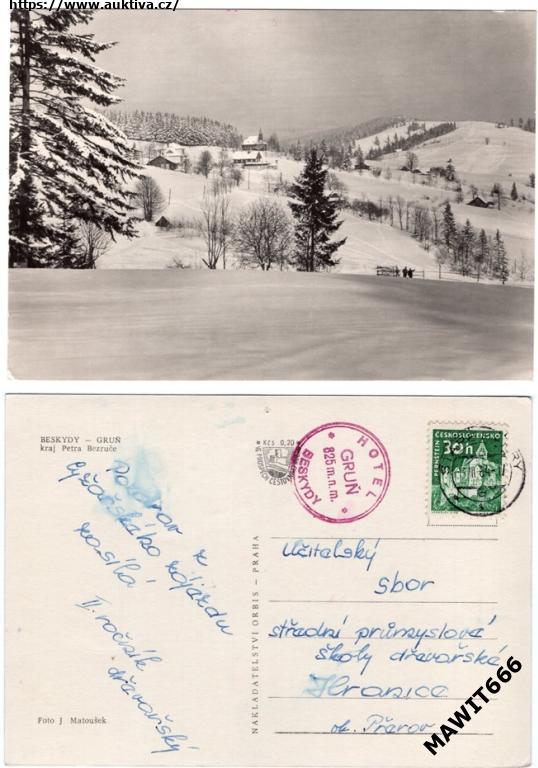 https://www.auktiva.cz/
BESKYDY – GRUŇ
kraj Petra Bezruče
Pozdrav z
lyžařského zájezdu
zasílá
II. ročník
dřevařský
Foto J Matoušek
NAKLADATELSTVÍ ORBIS – PRAHA
Kčs 0,20
HOTEL
GRUŇ
825 m.n.m.
BESKYDY
ČESKOSLOVENSKO
30h
Učitelský
sbor
střední průmyslové
školy dřevařské
Hranice
ok. Přerov
MAWIT666